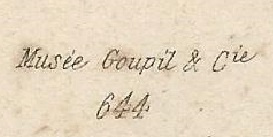 Musée Goupil & Cie
644